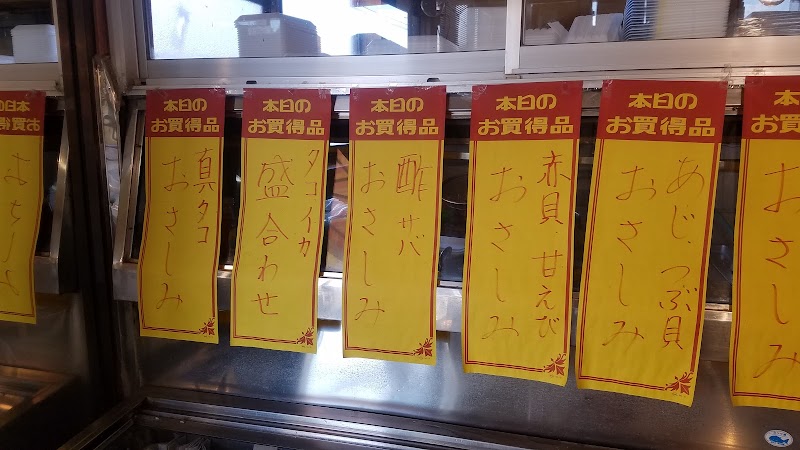 本日の
お買得品
あじ、つぶ貝
おさしみ
本日の
お買得品
赤貝、甘えび
おさしみ
本日の
お買得品
酢サバ
おさしみ
本日の
お買得品
タコイカ
盛合わせ
本日の
お買得品
真タコ
おさしみ
本日の
おさしみ